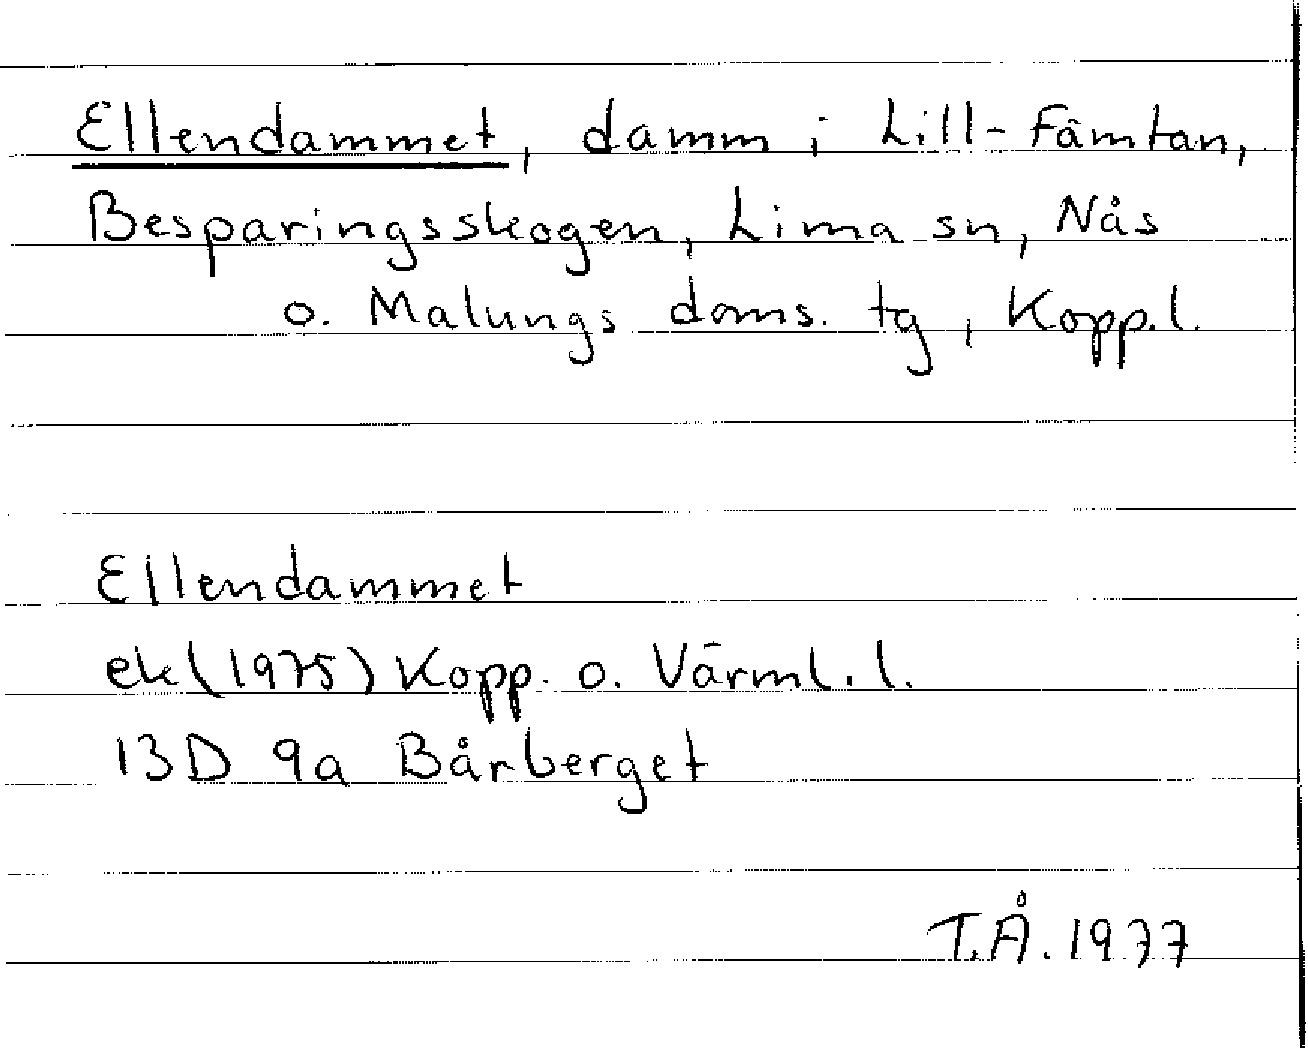 Ellendammet, damm i Lill-Fämtan,
Besparingsskogen, Lima sn, Nås
o. Malungs doms. tg, Kopp.l.
Ellendammet
ek(1975) Kopp. o. Värml.l.
13D 9a Bårberget
T.Å. 1977